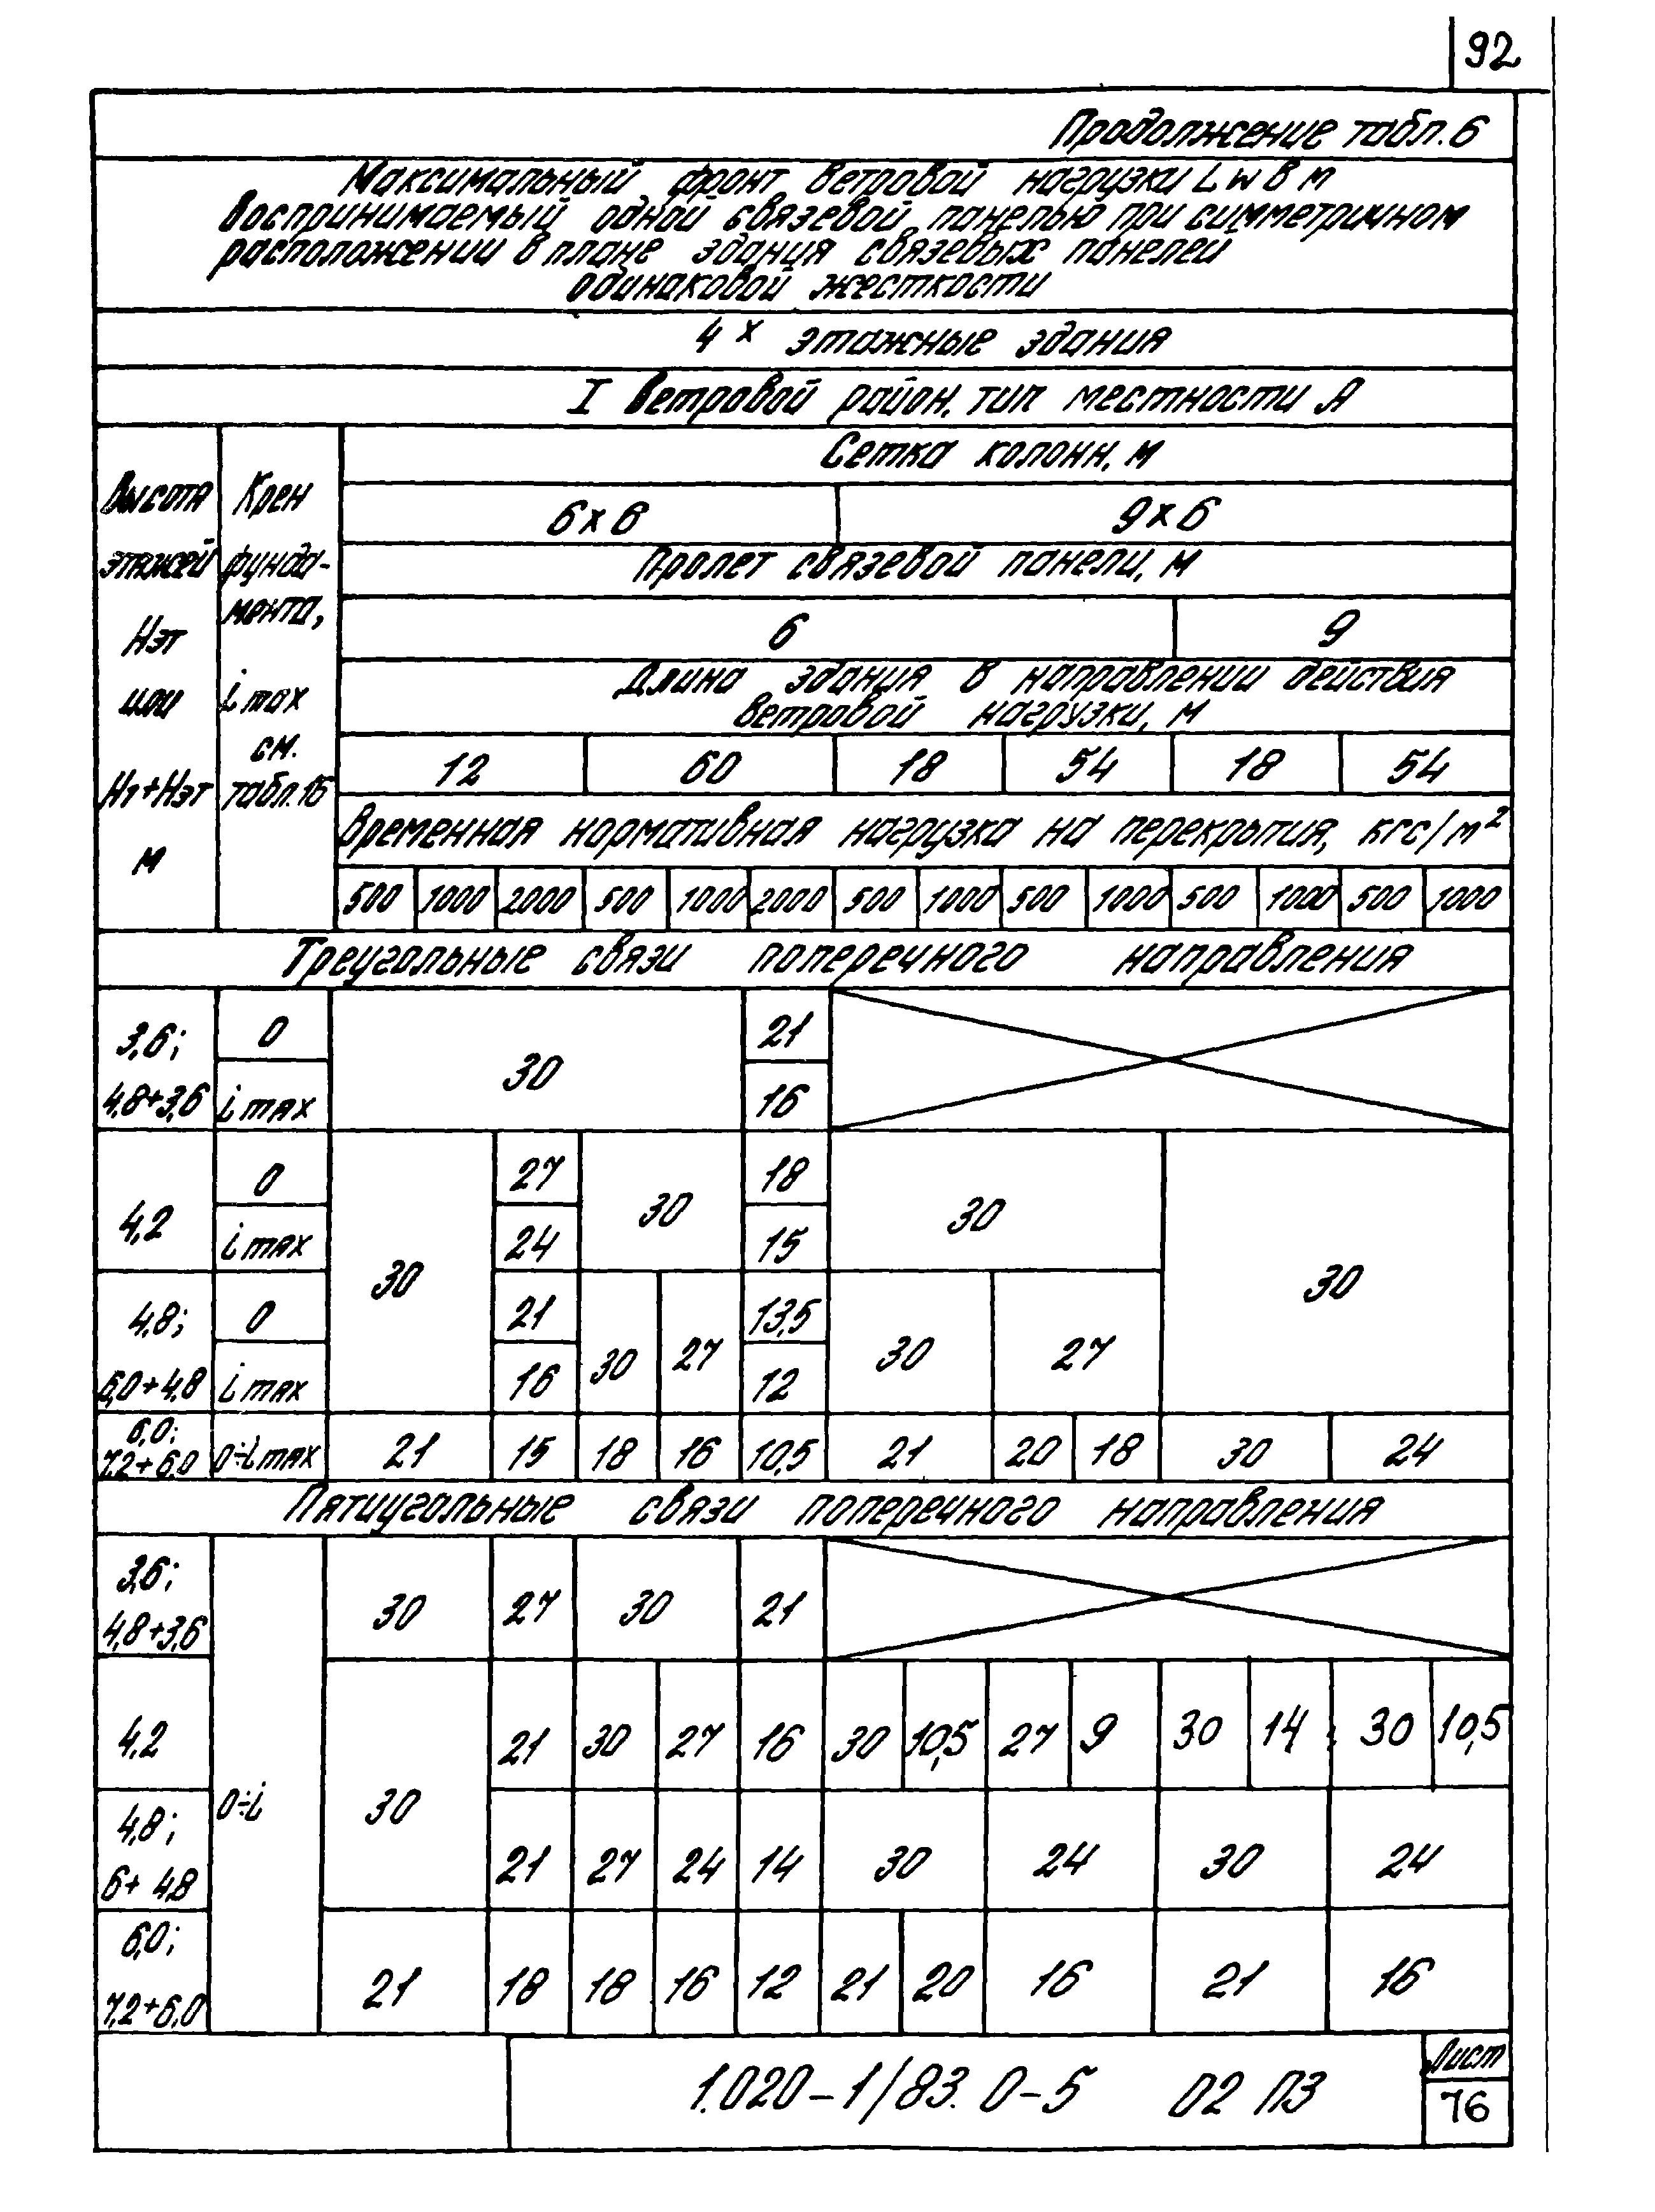 92
Продолжение табл. 6
Максимальный фронт ветровой нагрузки Lw в м
воспринимаемый одной связевой панелью при симметричном
расположении в плане здания связевых панелей
одинаковой жесткости
4х этажные здания
I Ветровой район, тип местности А
Высота этажей Нэт или Н1+Нэт м
Крен фунда-мента, i max см. табл. 16
Сетка колонн, м
6х6 9х6
Пролет связевой панели, м
6 9
Длина здания в направлении действия
ветровой нагрузки, м
12 60 18 54 18 54
Временная нормативная нагрузка на перекрытия, кгс/м²
500 1000 2000 500 1000 2000 500 1000 500 1000 500 1000 500 1000
Треугольные связи поперечного направления
3,6; 0 30 21
4,8+3,6 i max 16
4,2 0 30 27 30 18 30 30
i max 24 15
4,8; 0 21 30 27 13,5 30 27
6,0+4,8 i max 16 12
6,0;
7,2+6,0 0÷i max 21 15 18 16 10,5 21 20 18 30 24
Пятиугольные связи поперечного направления
3,6;
4,8+3,6 0÷i 30 27 30 21
4,2 30 21 30 27 16 30 10,5 27 9 30 14 30 10,5
4,8;
6+4,8 21 27 24 14 30 24 30 24
6,0;
7,2+6,0 21 18 18 16 12 21 20 16 21 16
1.020-1/83. 0-5 02 ПЗ
Лист
76